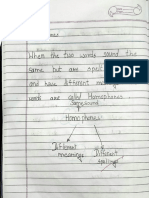 When the two words sound the
same but are spelt
and have different meanings
words are called Homophones
Same sound
Homophones
Different
meanings
Different
spellings